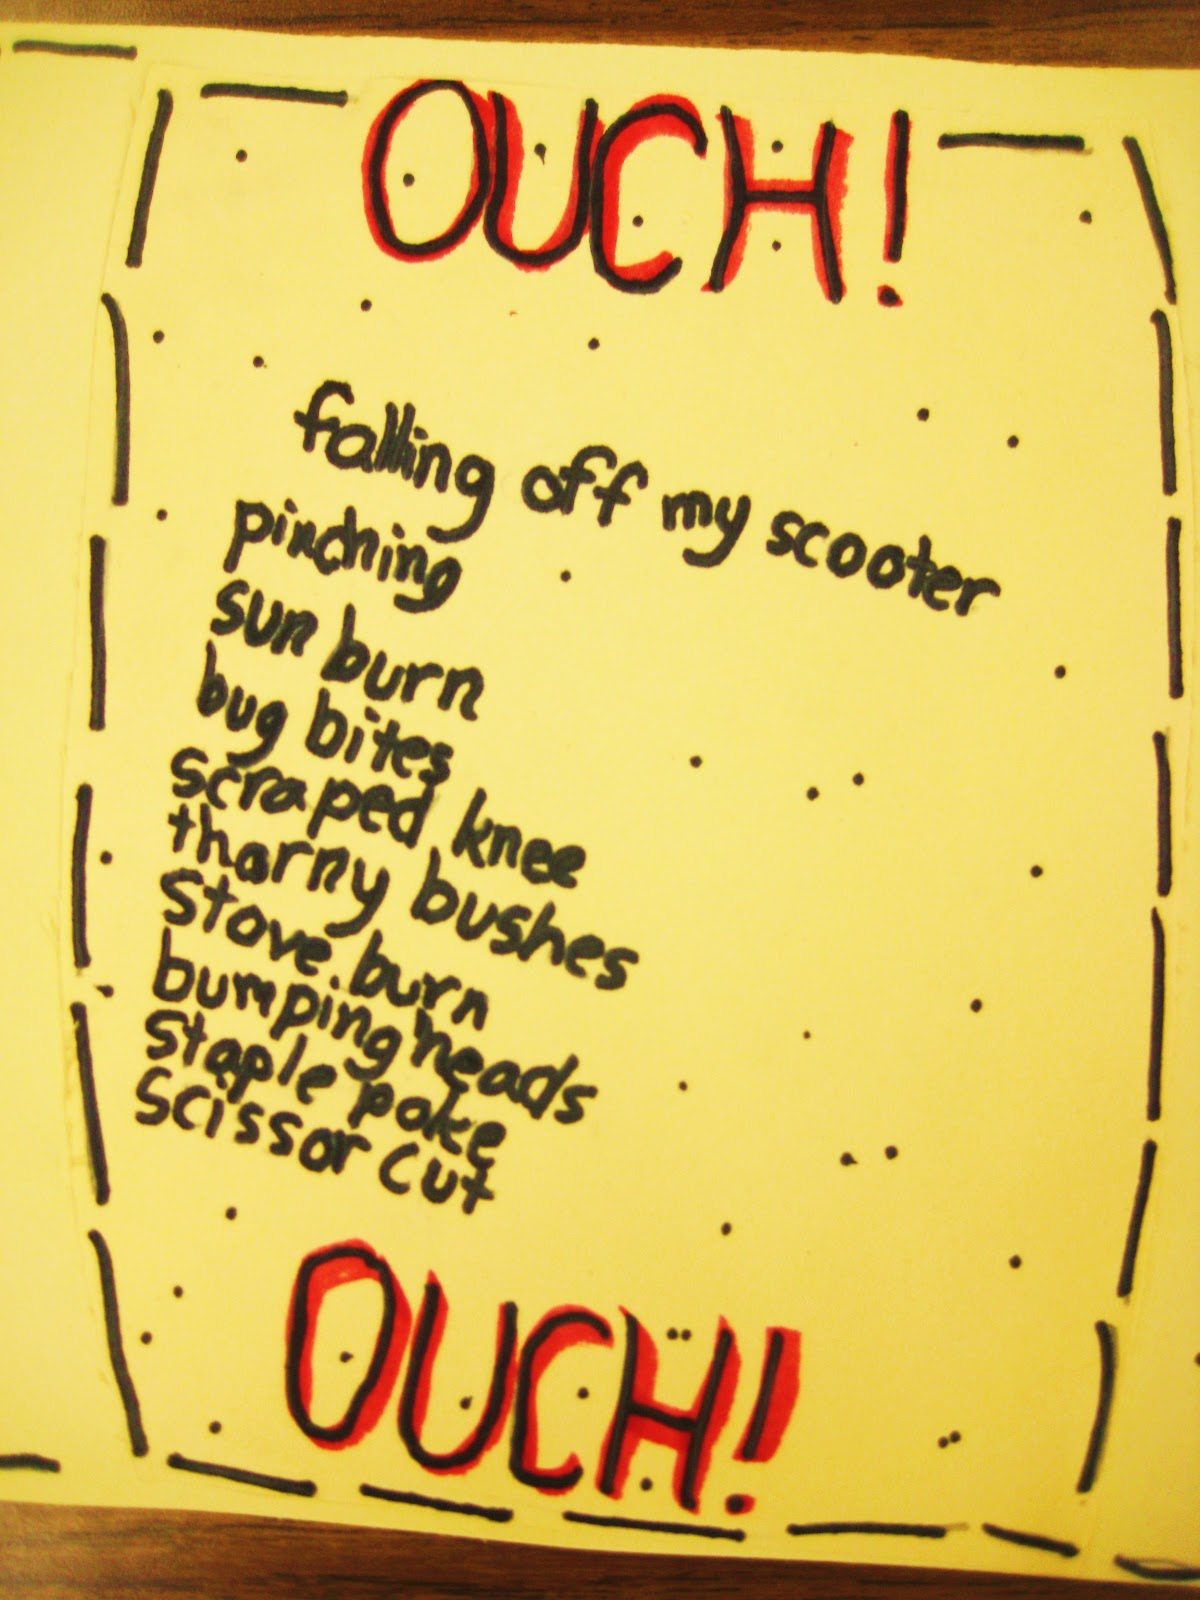 OUCH!
falling off my scooter
pinching
sun burn
bug bites
scraped knee
thorny bushes
stove burn
bumping heads
staple poke
scissor cut
OUCH!